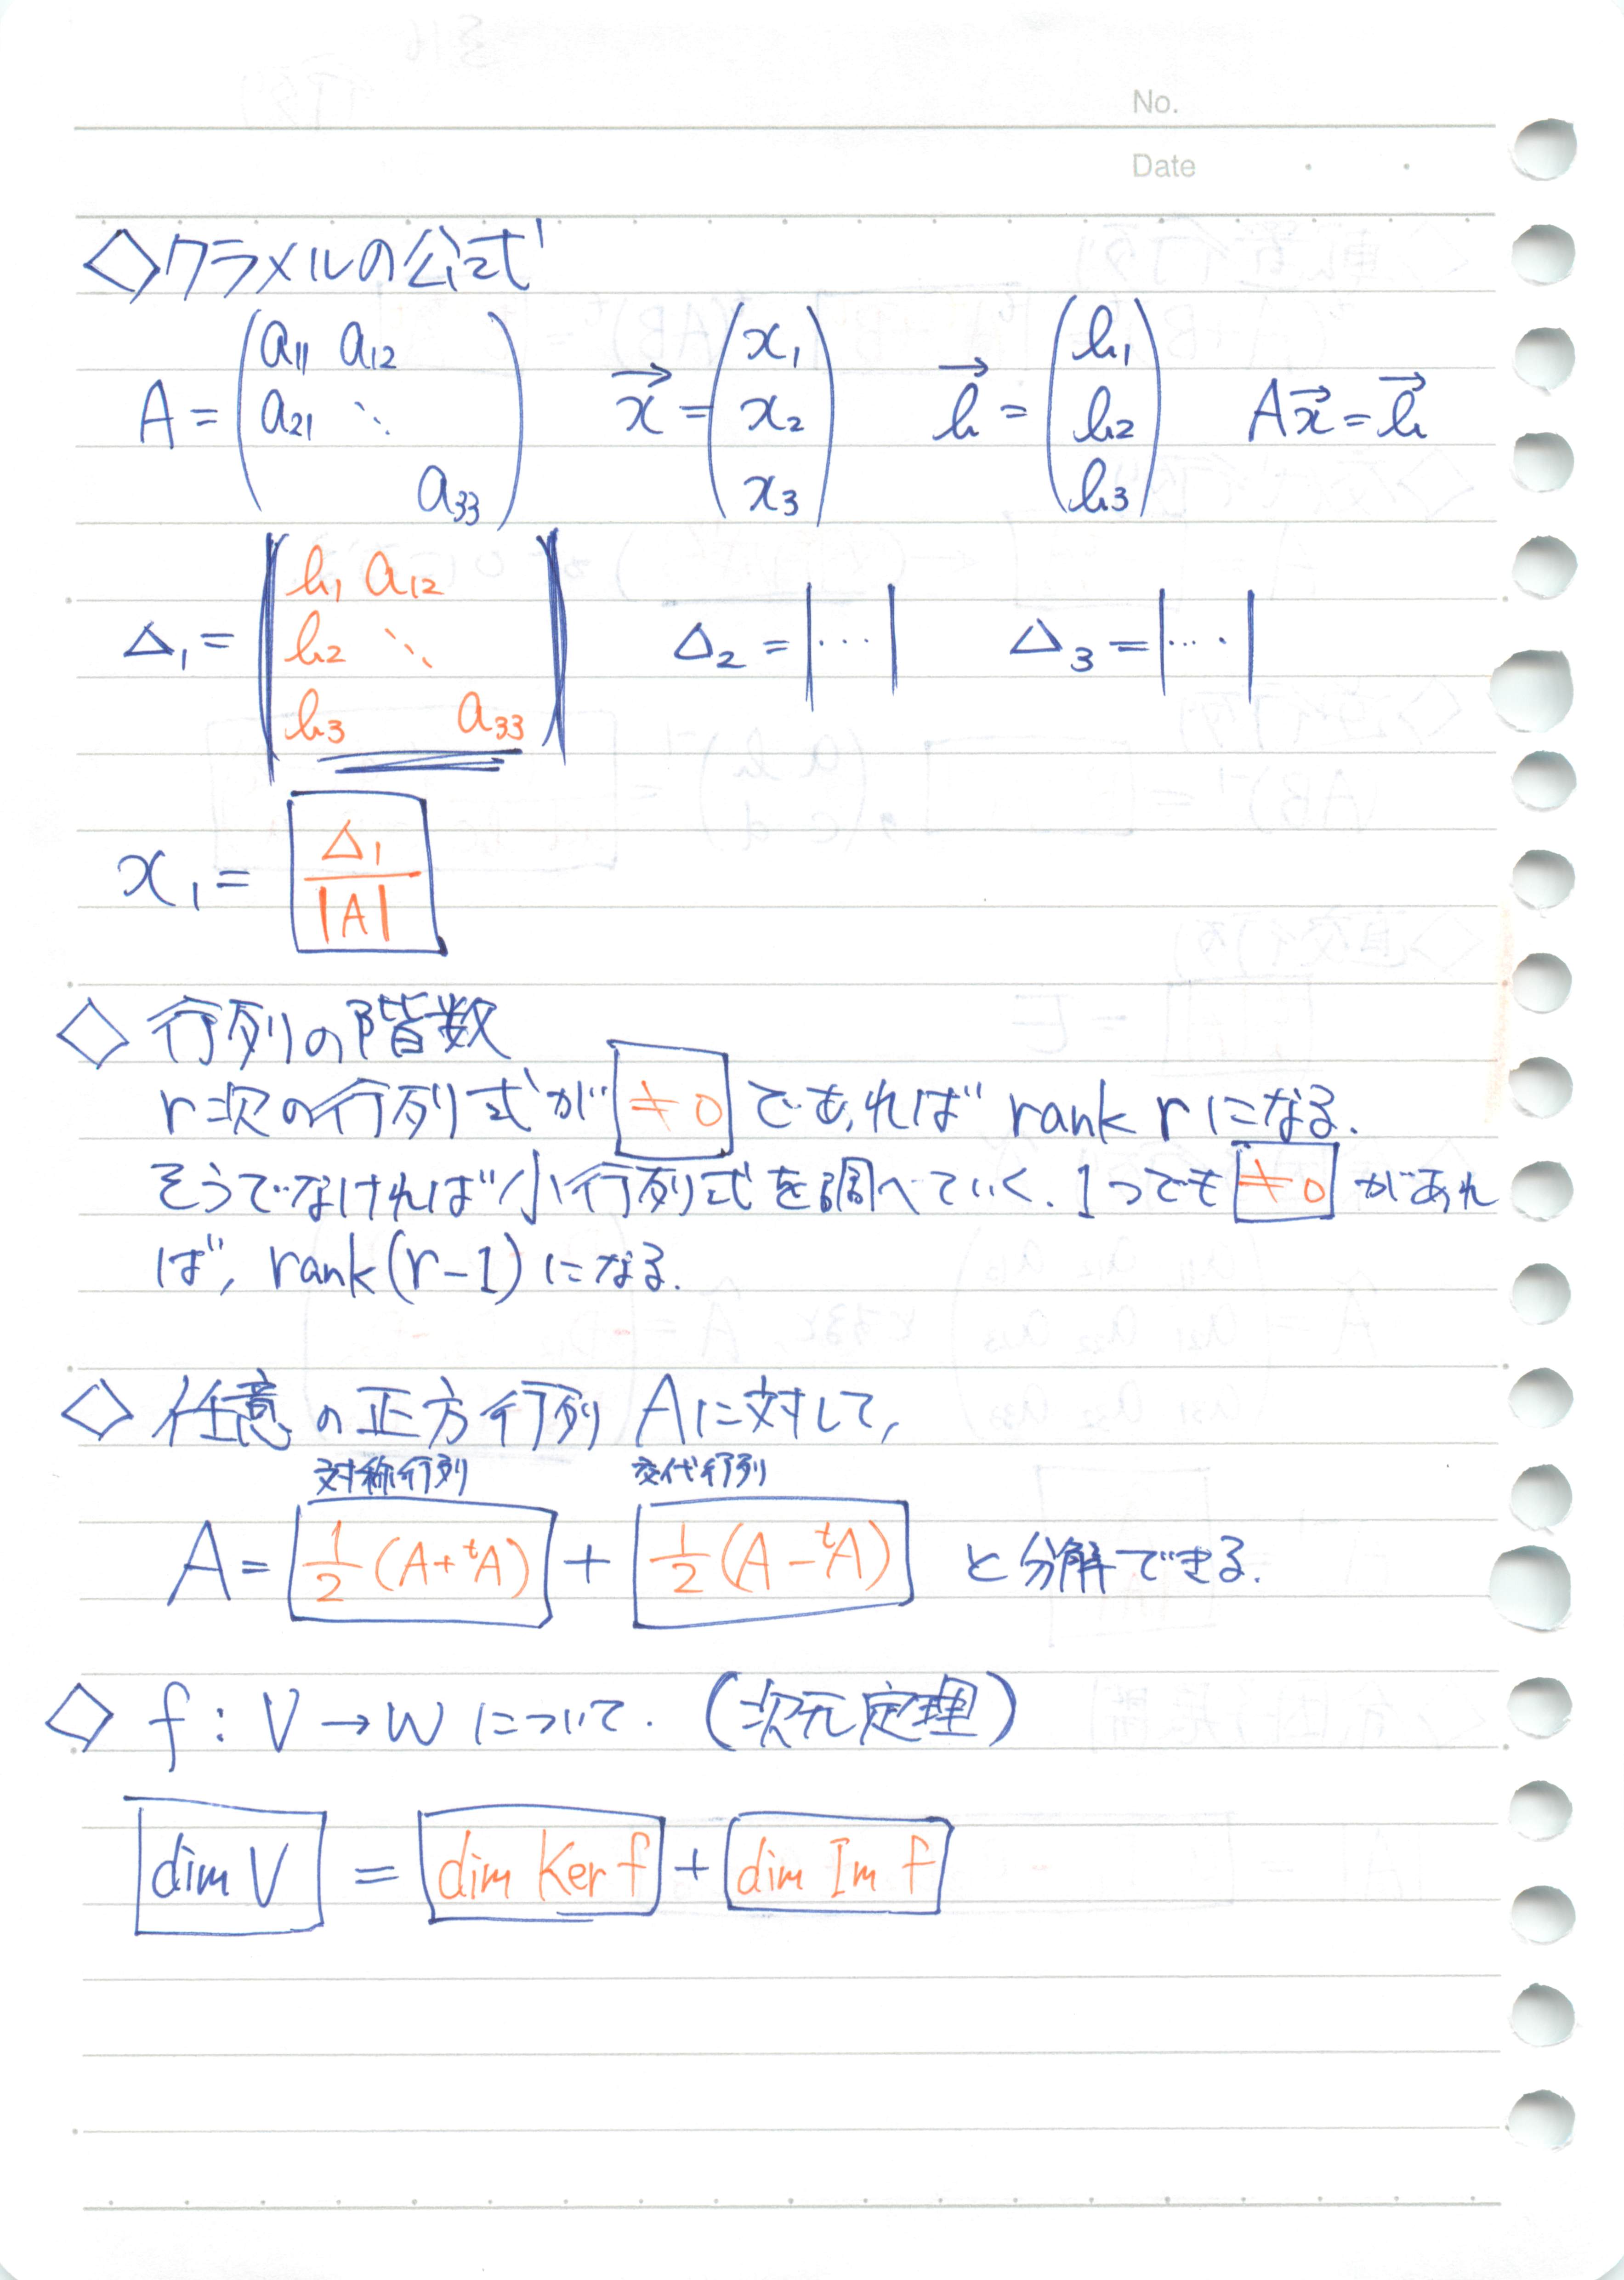 No.
Date
◇クラメルの公式
A = (a₁₁ a₁₂ a₂₁ ⋱ a₃₃) x⃗ = (x₁ x₂ x₃) b⃗ = (b₁ b₂ b₃) Ax⃗ = b⃗
Δ₁ = |b₁ a₁₂ b₂ ⋱ b₃ a₃₃| Δ₂ = |…| Δ₃ = |…|
x₁ = Δ₁/|A|
◇ 行列の階数
r次の行列式が ≠0 であれば rank rになる.
そうでなければ小行列式を調べていく. 1つでも ≠0 があれ
ば, rank(r-1)になる.
◇ 任意の正方行列 Aに対して,
対称行列 交代行列
A = 1/2 (A+ᵗA) + 1/2 (A-ᵗA) と分解できる.
◇ f : V → W について. (次元定理)
dim V = dim Ker f + dim Im f